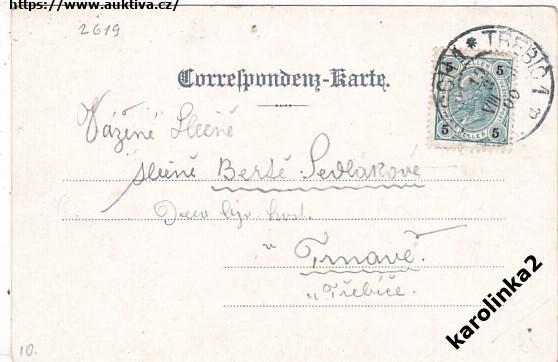 https://www.auktiva.cz/
2619
Correspondenz-Karte.
TŘEBÍČ 1
5 5
5 5
HELLER
VIII
00
Vážené Slečně
slečně Bertě Sedlákové
v
Trnavě
u Třebíče.
10.
karolinka2